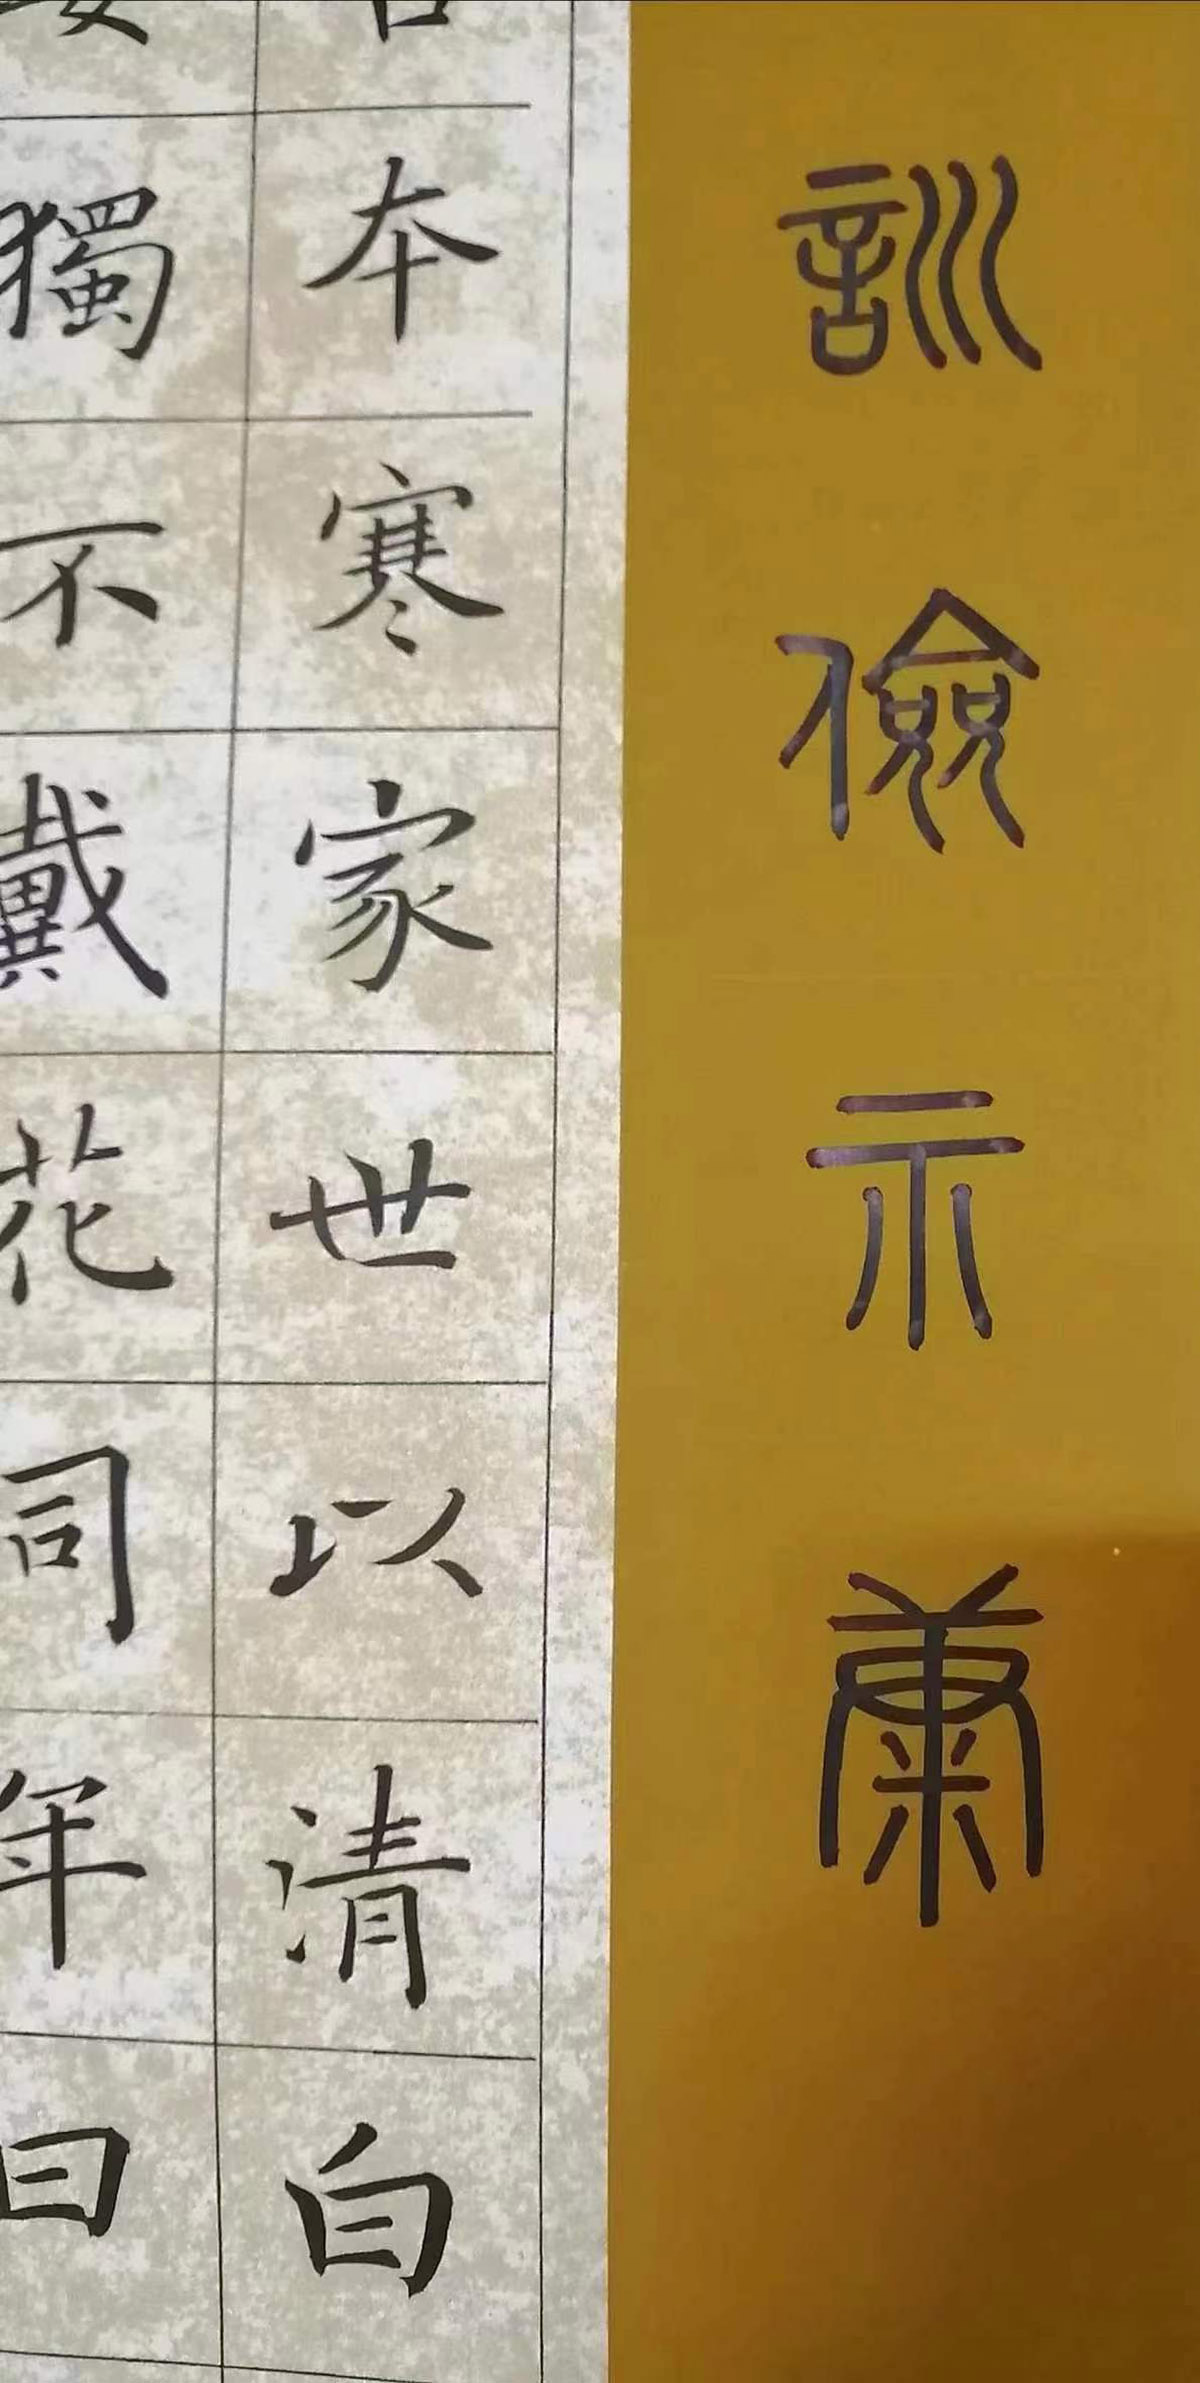 訓儉示康
本寒家世以清白
獨不戴花同年曰